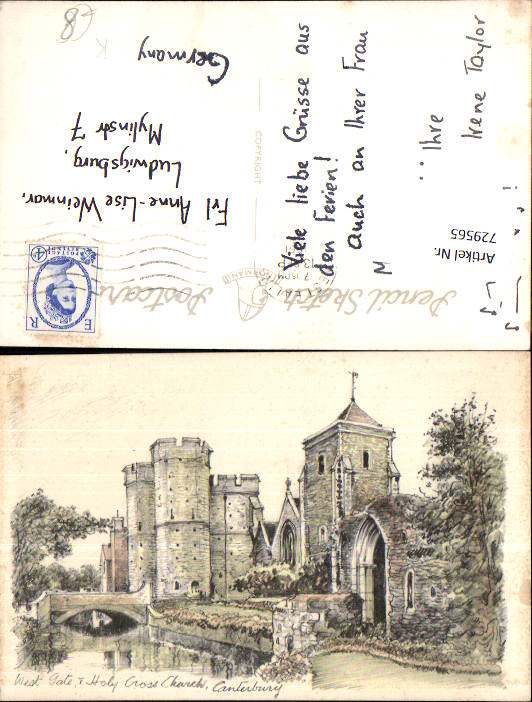 8
K
Viele liebe Grüsse aus
den Ferien!
auch an Ihrer Frau
M
... Ihre
Irene Taylor
Frl Anne-Lise Weinmar,
Ludwigsburg,
Mylinstr 7
Germany
COPYRIGHT
Pencil Sketch
Postcard
E R
POSTAGE
4D
Artikel Nr.
729565
West Gate, & Holy Cross Church, Canterbury